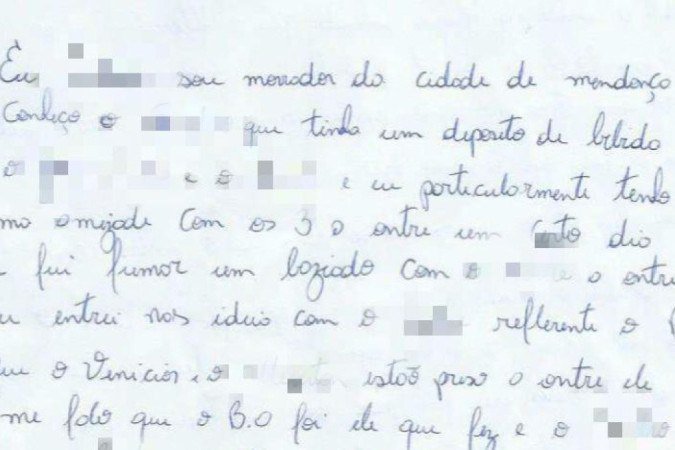 Eu sou morador da cidade de mendonço
Conheço o que tinha um deposito de bebida
o e o e eu particularmente tenho
mo amizade com os 3 o ontre um certo dia
fui fumar um baziado com o e o ontre
entrei nos ideia com o refferente o
o Venicios, o estão preso o ontre ele
me falo que o B.O foi ele que fez e o